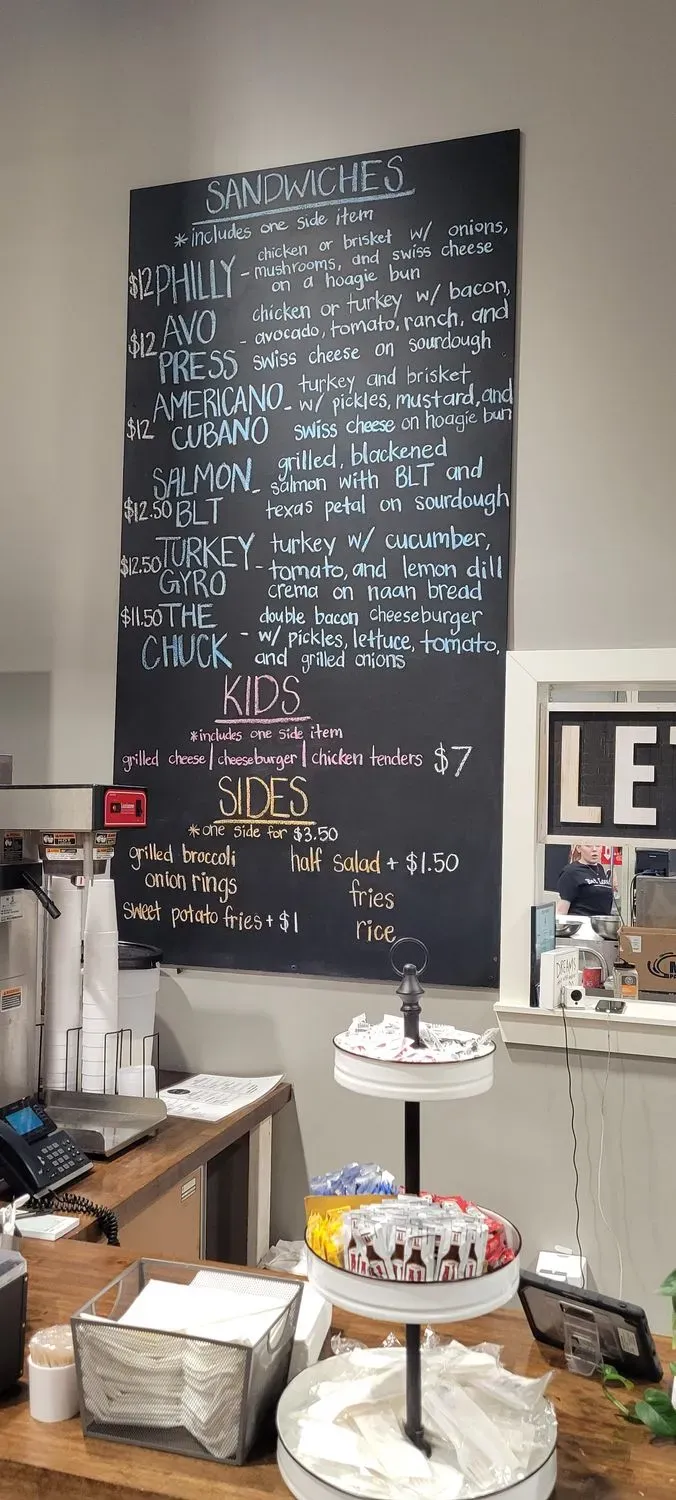 SANDWICHES
*includes one side item
$12 PHILLY - chicken or brisket w/ onions,
mushrooms, and swiss cheese
on a hoagie bun
$12 AVO
PRESS - chicken or turkey w/ bacon,
avocado, tomato, ranch, and
swiss cheese on sourdough
$12 AMERICANO
CUBANO - turkey and brisket
w/ pickles, mustard, and
swiss cheese on hoagie bun
$12.50 SALMON
BLT - grilled, blackened
salmon with BLT and
texas petal on sourdough
$12.50 TURKEY
GYRO - turkey w/ cucumber,
tomato, and lemon dill
crema on naan bread
$11.50 THE
CHUCK - double bacon cheeseburger
w/ pickles, lettuce, tomato,
and grilled onions
KIDS
*includes one side item
grilled cheese | cheeseburger | chicken tenders $7
SIDES
*one side for $3.50
grilled broccoli
onion rings
sweet potato fries + $1
half salad + $1.50
fries
rice
LET
DREAMS